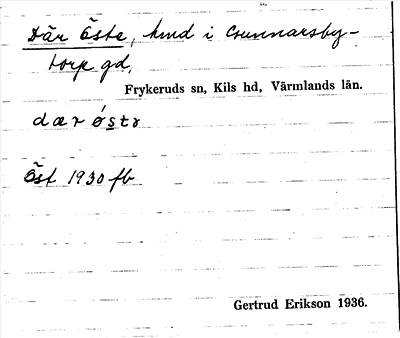 Där Öste, hmd i Gunnarsby-
torp gd,
Frykeruds sn, Kils hd, Värmlands län.
dær östɤ
Öst 1930 fb
Gertrud Erikson 1936.